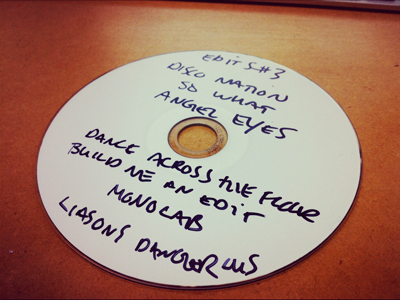 EDITS#3
DISCO NATION
SO WHAT
ANGEL EYES
DANCE ACROSS THE FLOOR
BUILD ME AN EDIT
MONOLAB
LIASONS DANGEROUS